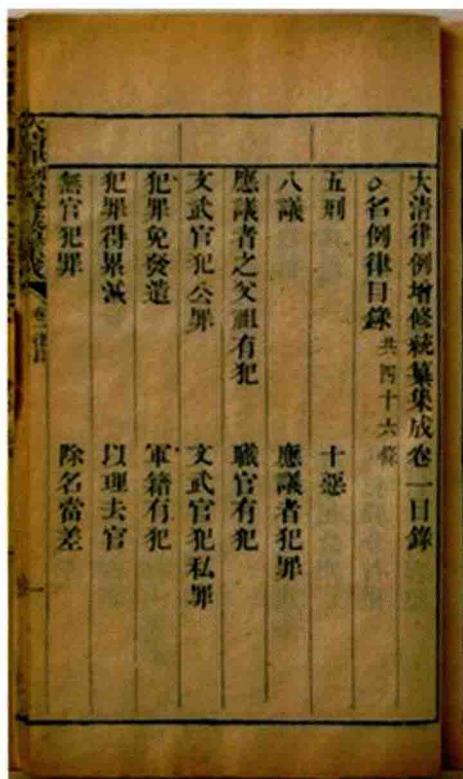 大清律例增修統纂集成卷一目錄
名例律目錄 共四十六條
五刑 十惡
八議 應議者犯罪
應議者之父祖有犯 職官有犯
文武官犯公罪 文武官犯私罪
犯罪免發遣 軍籍有犯
犯罪得累減 以理去官
無官犯罪 除名當差
卷一 律目